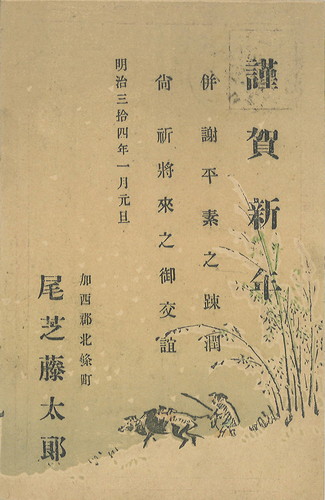 謹賀新年
併謝平素之踈濶
尙祈將來之御交誼
明治三拾四年一月元旦
加西郡北條町
尾芝藤太郎